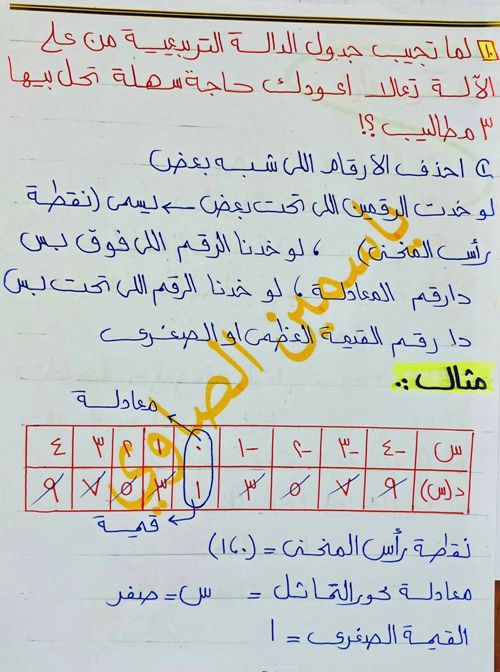 ١٠ لما تجيب جدول الدالة التربيعية من على
الآلة تعالا اعودك حاجة سهلة تحل بيها
٣ مطاليب ؟!
١ احذف الأرقام اللى شبه بعض
لو خدت الرقمين اللى تحت بعض ← يسمى (نقطة
رأس المنحنى) ، لو خدنا الرقم اللى فوق بس
دا رقم المعادلة ، لو خدنا الرقم اللى تحت بس
دا رقم القيمة العظمى او الصغرى
ياسمين الصاوي
مثال :
معادلة
س -٤ -٣ -٢ -١ ٠ ١ ٢ ٣ ٤
د(س) ٩ ٧ ٥ ٣ ١ ٣ ٥ ٧ ٩
قيمة
نقطة رأس المنحنى = (٠،١)
معادلة محور التماثل = س = صفر
القيمة الصغرى = ١